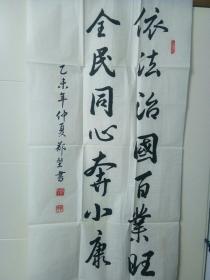 依法治國百業旺
全民同心奔小康
乙未年仲夏鄭
書